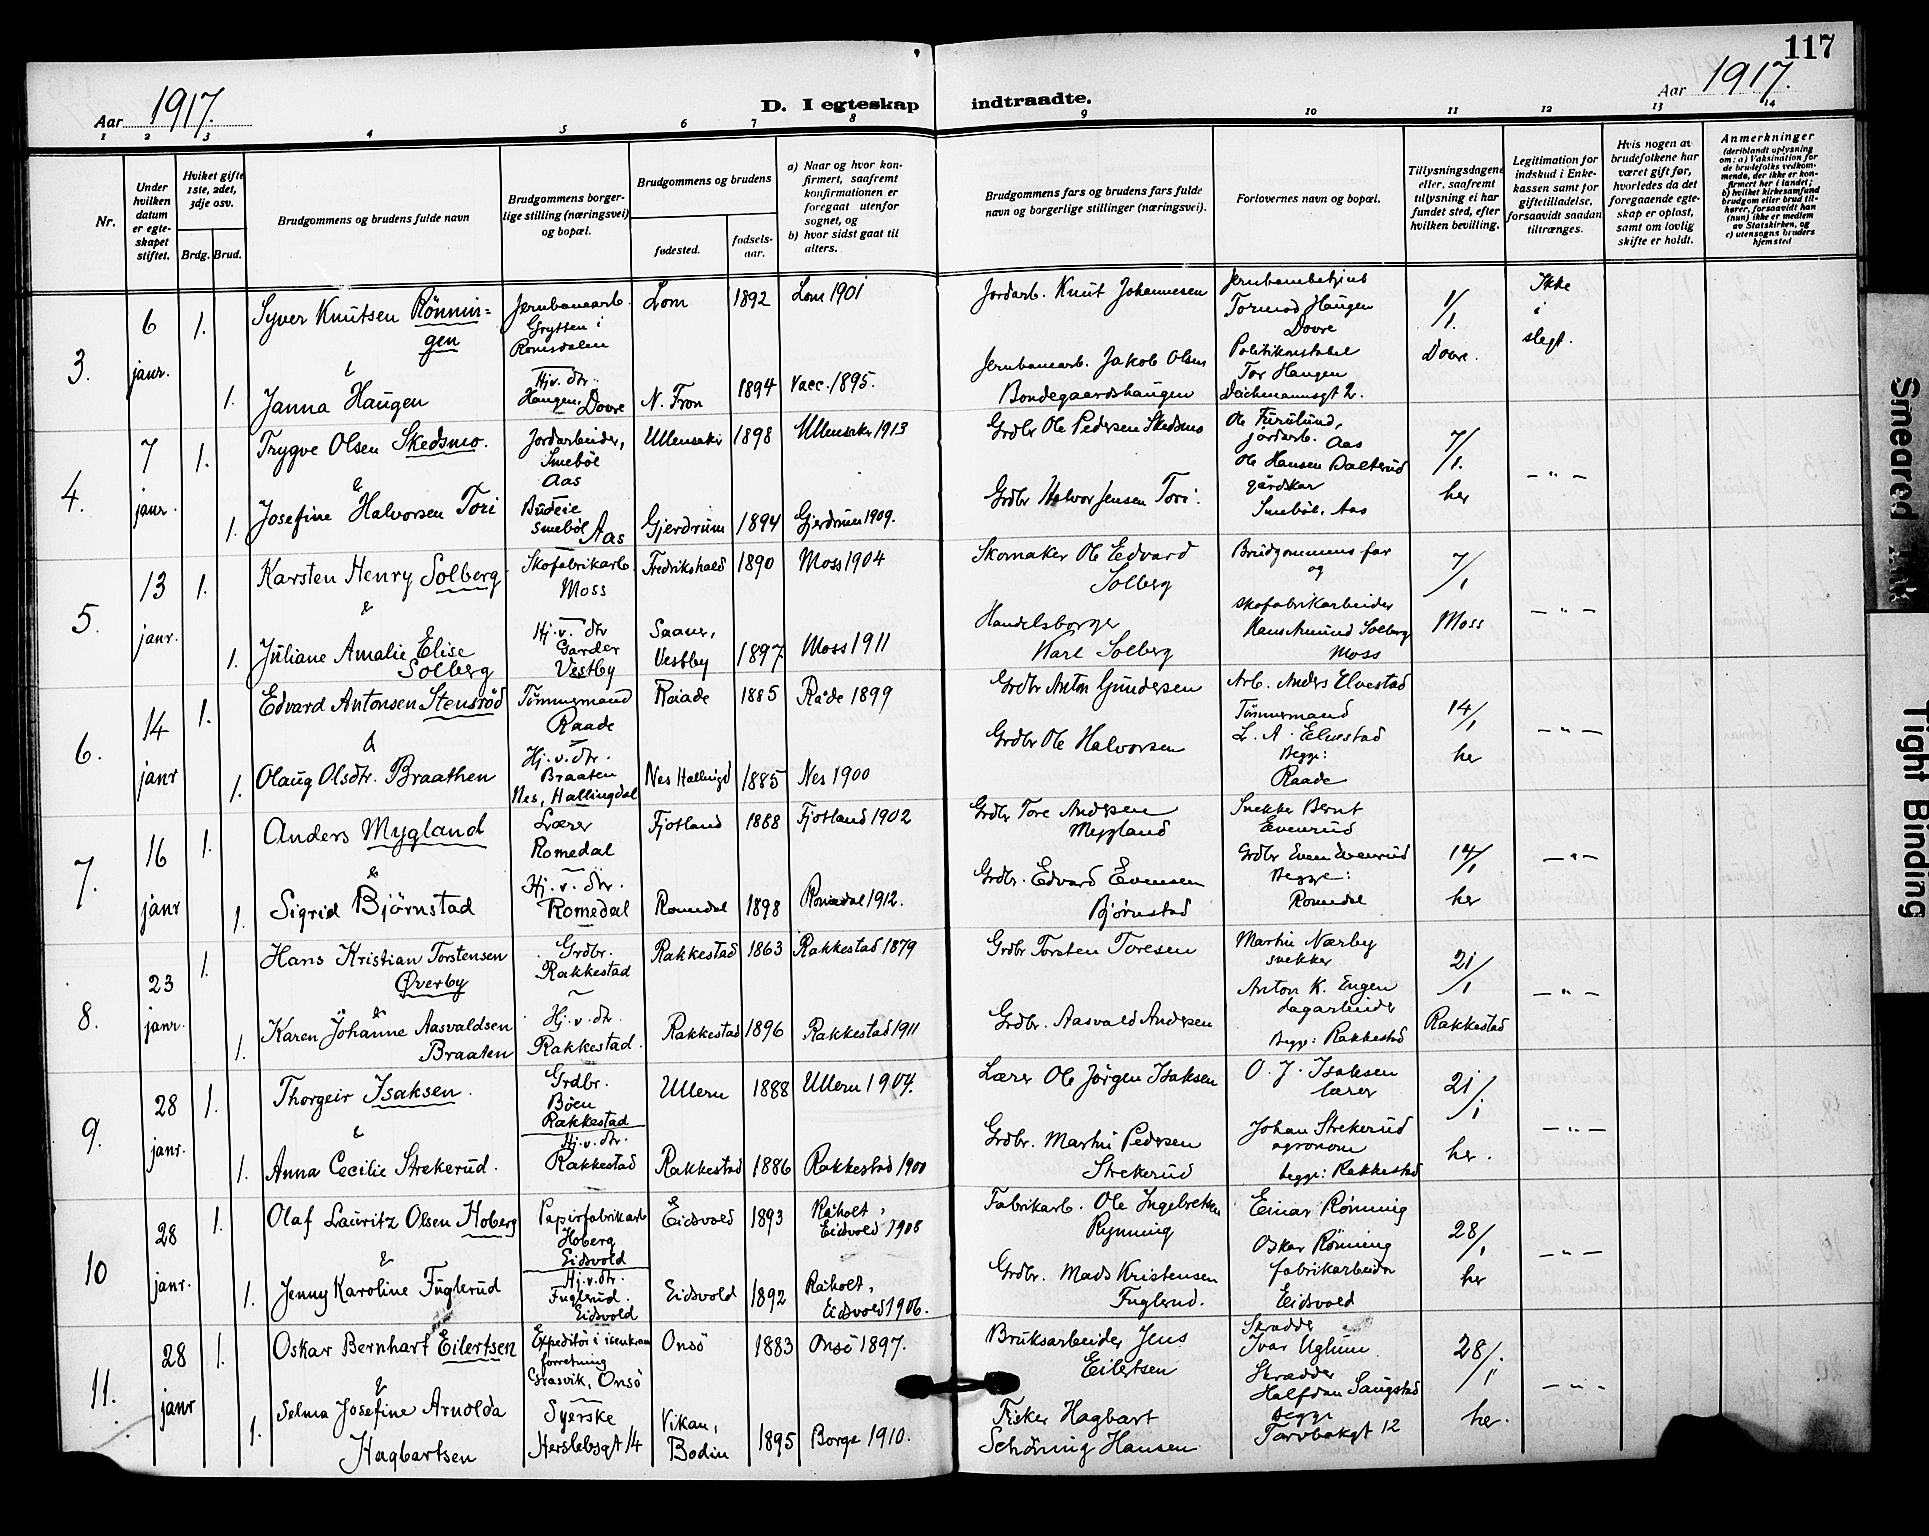 117
Aar 1917.
D. I egteskap indtraadte.
Aar 1917.
1 2 3 4 5 6 7 8 9 10 11 12 13 14
Nr.
Under hvilken datum er egteskapet stiftet.
Hvilket gifte 1ste, 2det, 3dje osv.
Brdg. Brud.
Brudgommens og brudens fulde navn
Brudgommens borgerlige stilling (næringsvei) og bopæl.
Brudgommens og brudens
fødested.
fødselsaar.
a) Naar og hvor konfirmert, saafremt konfirmationen er foregaat utenfor sognet, og
b) hvor sidst gaat til alters.
Brudgommens fars og brudens fars fulde navn og borgerlige stillinger (næringsvei).
Forlovernes navn og bopæl.
Tillysningsdagene eller, saafremt tillysning ei har fundet sted, efter hvilken bevilling.
Legitimation for indskud i Enkekassen samt for giftetilladelse, forsaavidt saadan tiltrænges.
Hvis nogen av brudefolkene har været gift før, hvorledes da det foregaaende egteskap er opløst, samt om lovlig skifte er holdt.
Anmerkninger
(deriblandt oplysning om: a) Vaksination for de brudefolks vedkommende, der ikke er konfirmert her i landet; b) hvilket kirkesamfund brudgom eller brud tilhører, forsaavidt han (hun) ikke er medlem av Statskirken, og c) utensogns bruders hjemsted
3. 6 janr. 1. Syver Knutsen Rönningen Jernbanearb. Grytten i Romsdalen Lom 1892 Lom 1901 Jordarb. Knut Johannesen Jernbanebetjent Tormod Haugen Dovre 1/1. Dovre. Ikke i slegt.
&
1. Janna Haugen Hj. v. dtr. Haugen, Dovre N. Fron 1894 Vacc. 1895. Jernbanearb. Jakob Olsen Bondegaardshaugen Politikonstabel Tor Haugen Deichmannsgt 2.
4. 7 janr. 1. Trygve Olsen Skedsmo. Jordarbeider, Smeböl Aas Ullensaker 1898 Ullensaker 1913 Grdbr Ole Pedersen Skedsmo Ole Furulund, jordarb. Aas 7/1. her — " —
&
1. Josefine Halvorsen Tori Budeie Smeböl Aas Gjerdrum 1894 Gjerdrum 1909. Grdbr Halvor Jensen Tori. Ole Hansen Dalterud gårdskar Smeböl, Aas
5. 13 janr. 1. Karsten Henry Solberg Skofabrikarb. Moss Fredrikshald 1890 Moss 1904 Skomaker Ole Edvard Solberg Brudgommens far og 7/1 Moss — " —
&
1. Juliane Amalie Elise Solberg Hj. v. dtr Garder Vestby Saaner, Vestby 1897 Moss 1911 Handelsborger Karl Solberg skofabrikarbeider Hans Amund Solberg Moss
6. 14 janr 1. Edvard Antonsen Stensröd Tömmermand Raade Raade 1885 Råde 1899 Grdbr Anton Gundersen Arb. Anders Elvestad 14/1 her — " —
&
1. Olaug Olsdtr. Braathen Hj. v. dtr. Braaten Nes, Hallingdal Nes Hallingd 1885 Nes 1900 Grdbr Ole Halvorsen Tömmermand L. A. Elvestad Begge: Raade
7. 16 janr 1. Anders Mygland Lærer Romedal Fjotland 1888 Fjotland 1902 Grdbr Tore Andersen Mygland Snekker Bernt Evenrud 14/1 her — " —
&
1. Sigrid Björnstad Hj. v. dtr. Romedal Romedal 1898 Romedal 1912. Grdbr. Edvard Evensen Bjørnstad Grdbr Even Evenrud Begge: Romedal
8. 23 janr. 1. Hans Kristian Torstensen Øverby Grdbr. Rakkestad Rakkestad 1863 Rakkestad 1879 Grdbr Torsten Toresen Martin Nærby snekker 21/1 Rakkestad — " —
&
1. Karen Johanne Aasvaldsen Braaten Hj. v. dtr. Rakkestad. Rakkestad 1896 Rakkestad 1911 Grdbr. Aasvald Andersen Anton K. Engen Lagarbeider Begge: Rakkestad
9. 28 janr. 1. Thorgeir Isaksen. Grdbr. Böen Rakkestad Ullern 1888 Ullern 1904. Lærer Ole Jörgen Isaksen O. J. Isaksen lærer 21/1 her. — " —
&
1. Anna Cecilie Strekerud. Hj. v. dtr. Rakkestad Rakkestad 1886 Rakkestad 1900 Grdbr. Martin Pedersen Strekerud Johan Strekerud agronom begge: Rakkestad
10 28 janr. 1. Olaf Lauritz Olsen Hoberg Papirfabrikarb Hoberg Eidsvold Eidsvold 1893 Råholt, Eidsvold 1908 Fabrikarb. Ole Ingebretsen Rynning Einar Rønning 28/1 her — " —
&
1. Jenny Karoline Fuglerud Hj. v. dtr. Fuglerud. Eidsvold Eidsvold 1892 Råholt, Eidsvold 1906. Grdbr. Mads Kristensen Fuglerud. Oskar Rønning fabrikarbeider Eidsvold
11. 28 janr 1. Oskar Bernhart Eilertsen Expeditör i isenkramforretning Græsvik, Onsö Onsö 1883 Onsö 1897. Bruksarbeider Jens Eilertsen Skrædder Ivar Uglum 28/1 her. — " —
&
1. Selma Josefine Arnolda Hagbartsen Syerske Herslebsgt 14 Vikan, Bodin 1895 Borge 1910. Fisker Hagbart Schöning Hansen Skrædder Halfdan Saugstad Begge Torvbakgt 12
Smeared Ink
Tight Binding